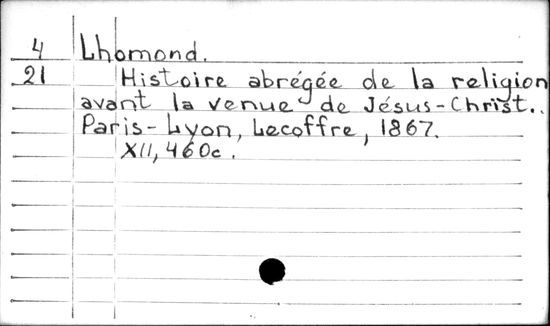 4 Lhomond.
21 Histoire abrégée de la religion
avant la venue de Jésus-Christ..
Paris-Lyon, Lecoffre, 1867.
XII, 460c.